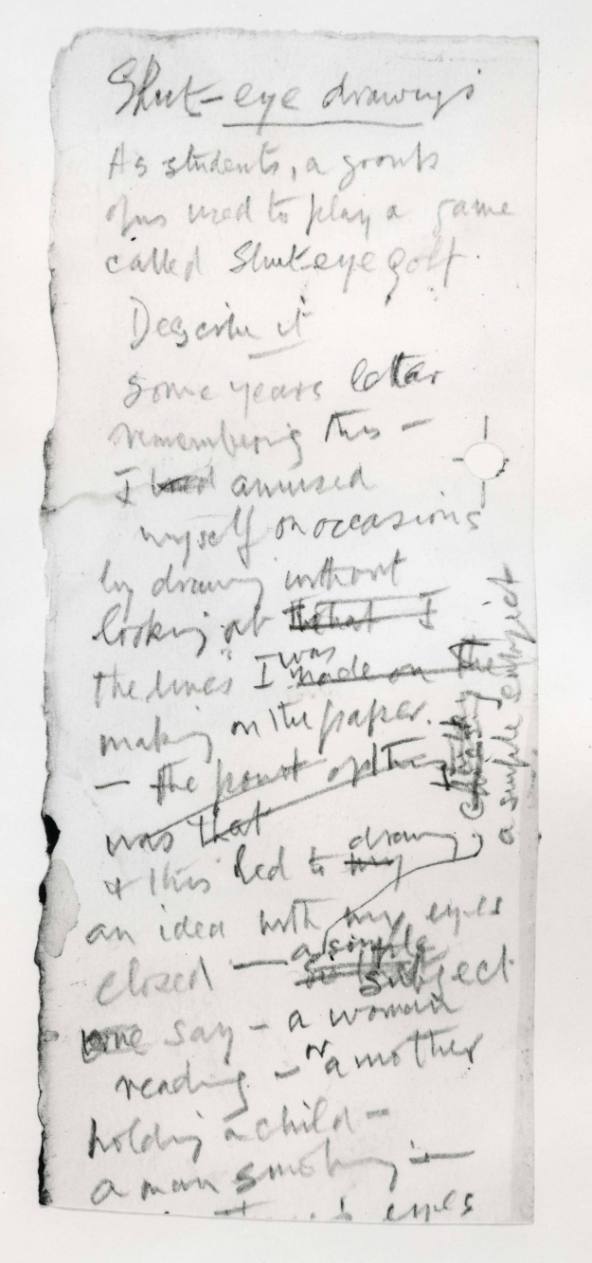 Shut-eye drawings
As students, a group
of us used to play a game
called Shut-eye golf.
Describe it
Some years later
remembering this —
I had amused
myself on occasions
by drawing without
looking at what I
the lines I was made on the
making on the paper.
— the point of this
was that
& this led to my drawing
an idea with my eyes
closed — a simple
subject
one say — a woman
reading — or a mother
holding a child —
a man smoking —
eyes
a simple subject